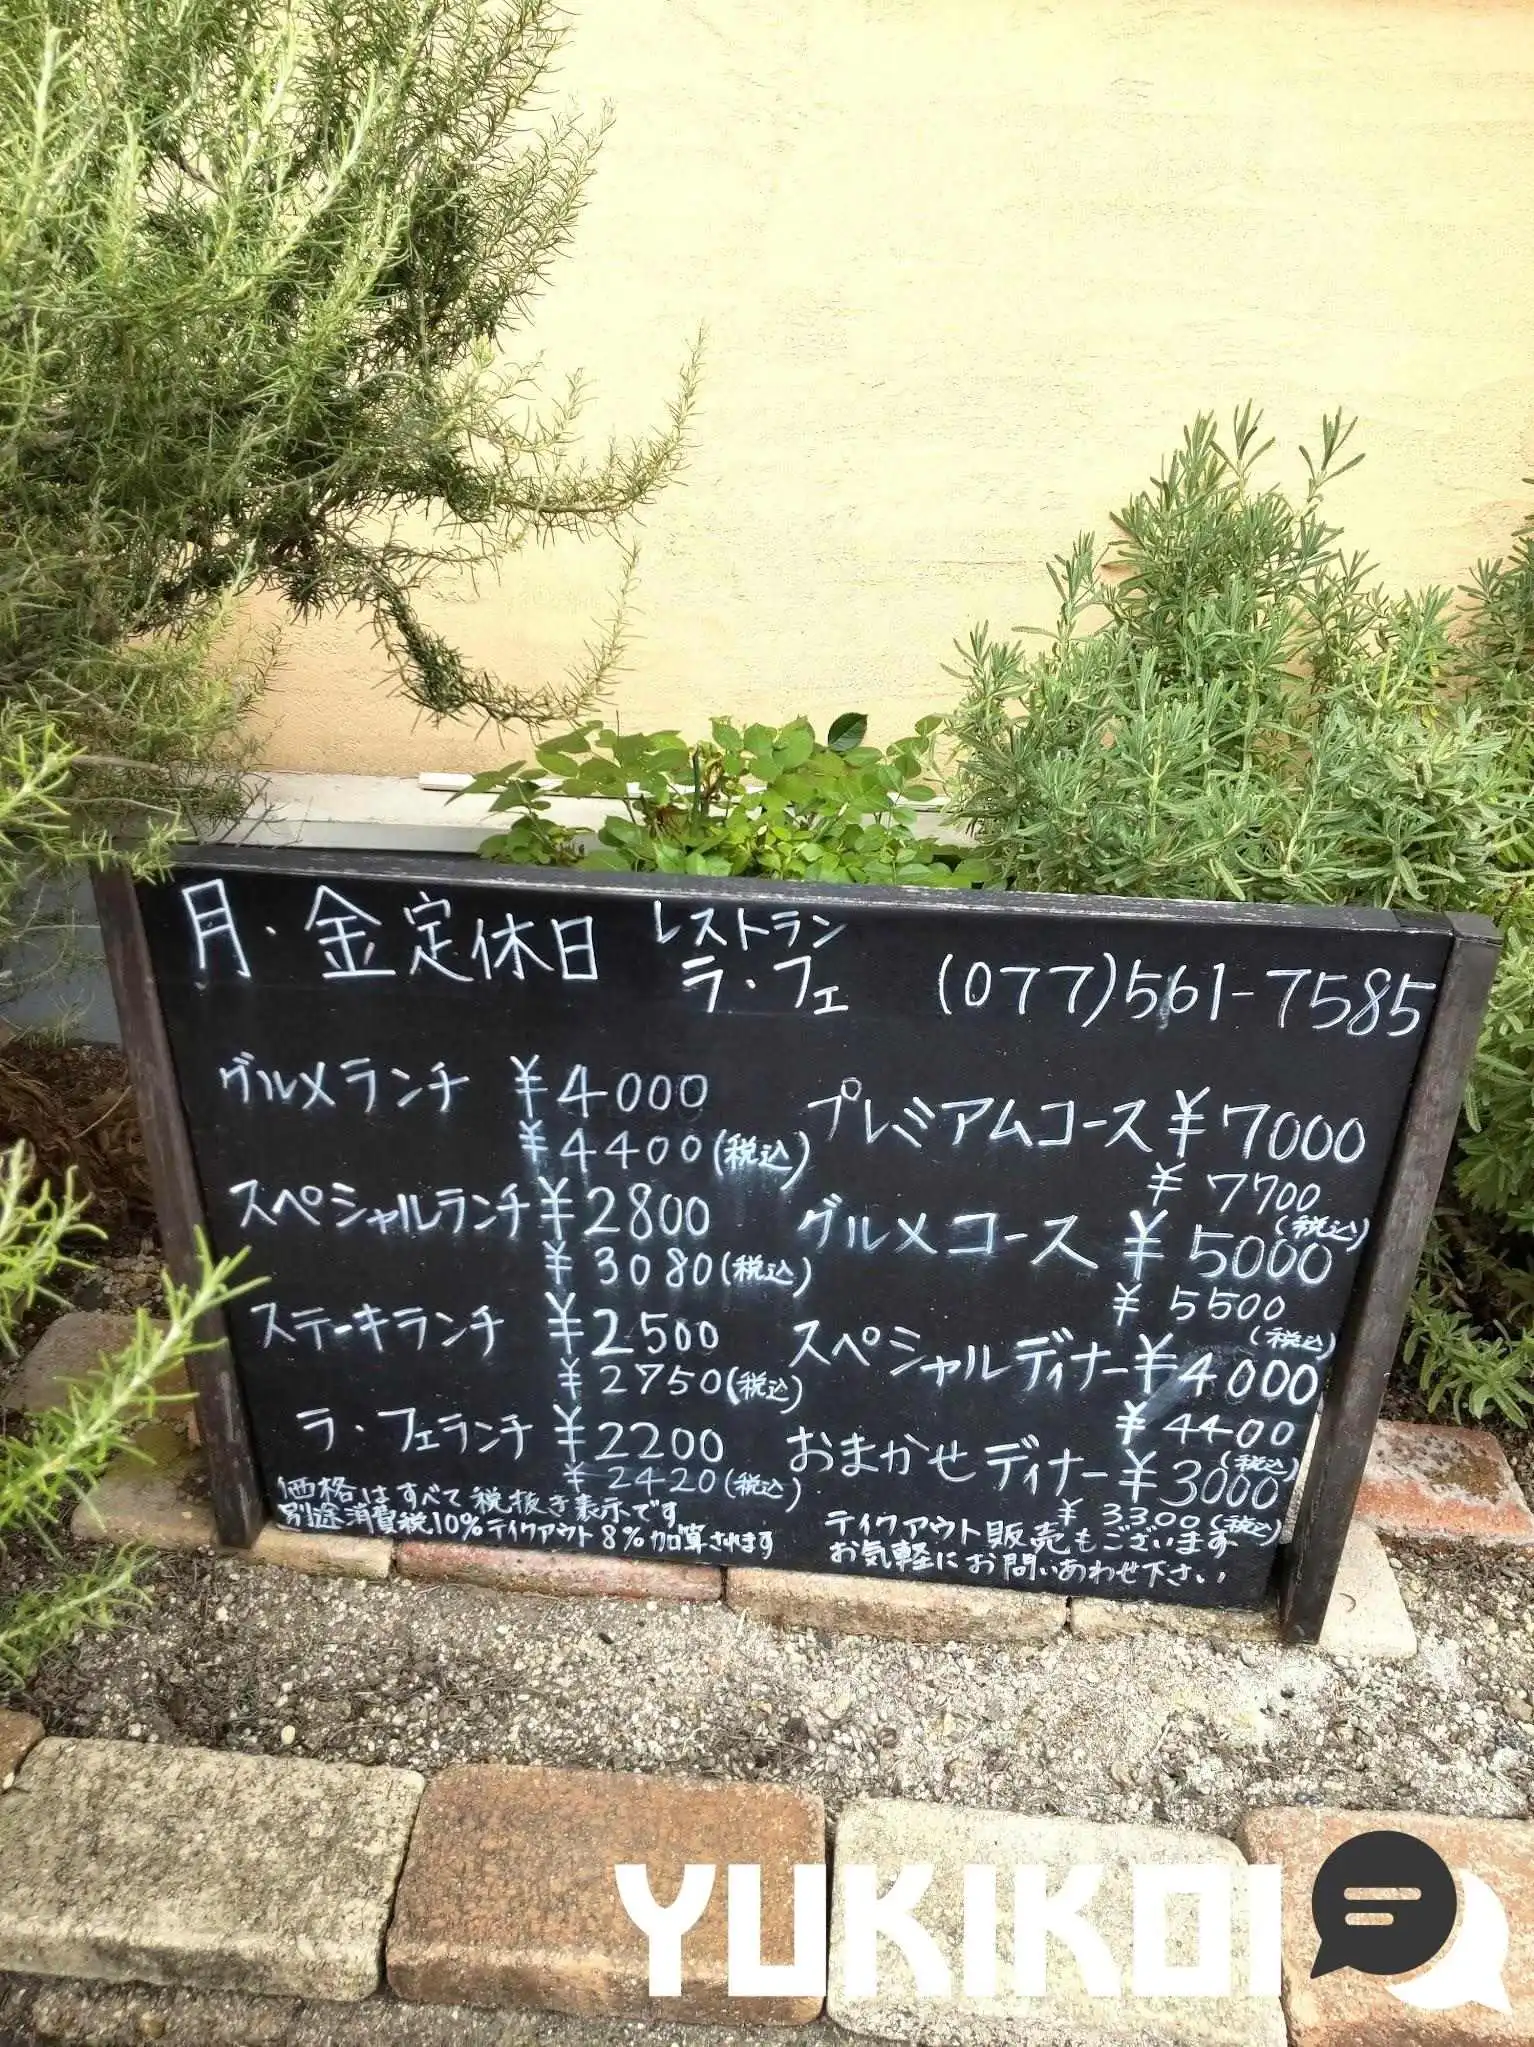 月・金定休日
レストラン
ラ・フェ
(077)561-7585
グルメランチ ¥4000
¥4400(税込)
スペシャルランチ ¥2800
¥3080(税込)
ステーキランチ ¥2500
¥2750(税込)
ラ・フェランチ ¥2200
¥2420(税込)
価格はすべて税抜き表示です
別途消費税10%テイクアウト8%加算されます
プレミアムコース ¥7000
¥7700
(税込)
グルメコース ¥5000
¥5500
(税込)
スペシャルディナー ¥4000
¥4400
(税込)
おまかせディナー ¥3000
¥3300(税込)
テイクアウト販売もございます
お気軽にお問いあわせ下さい
YUKIKOI